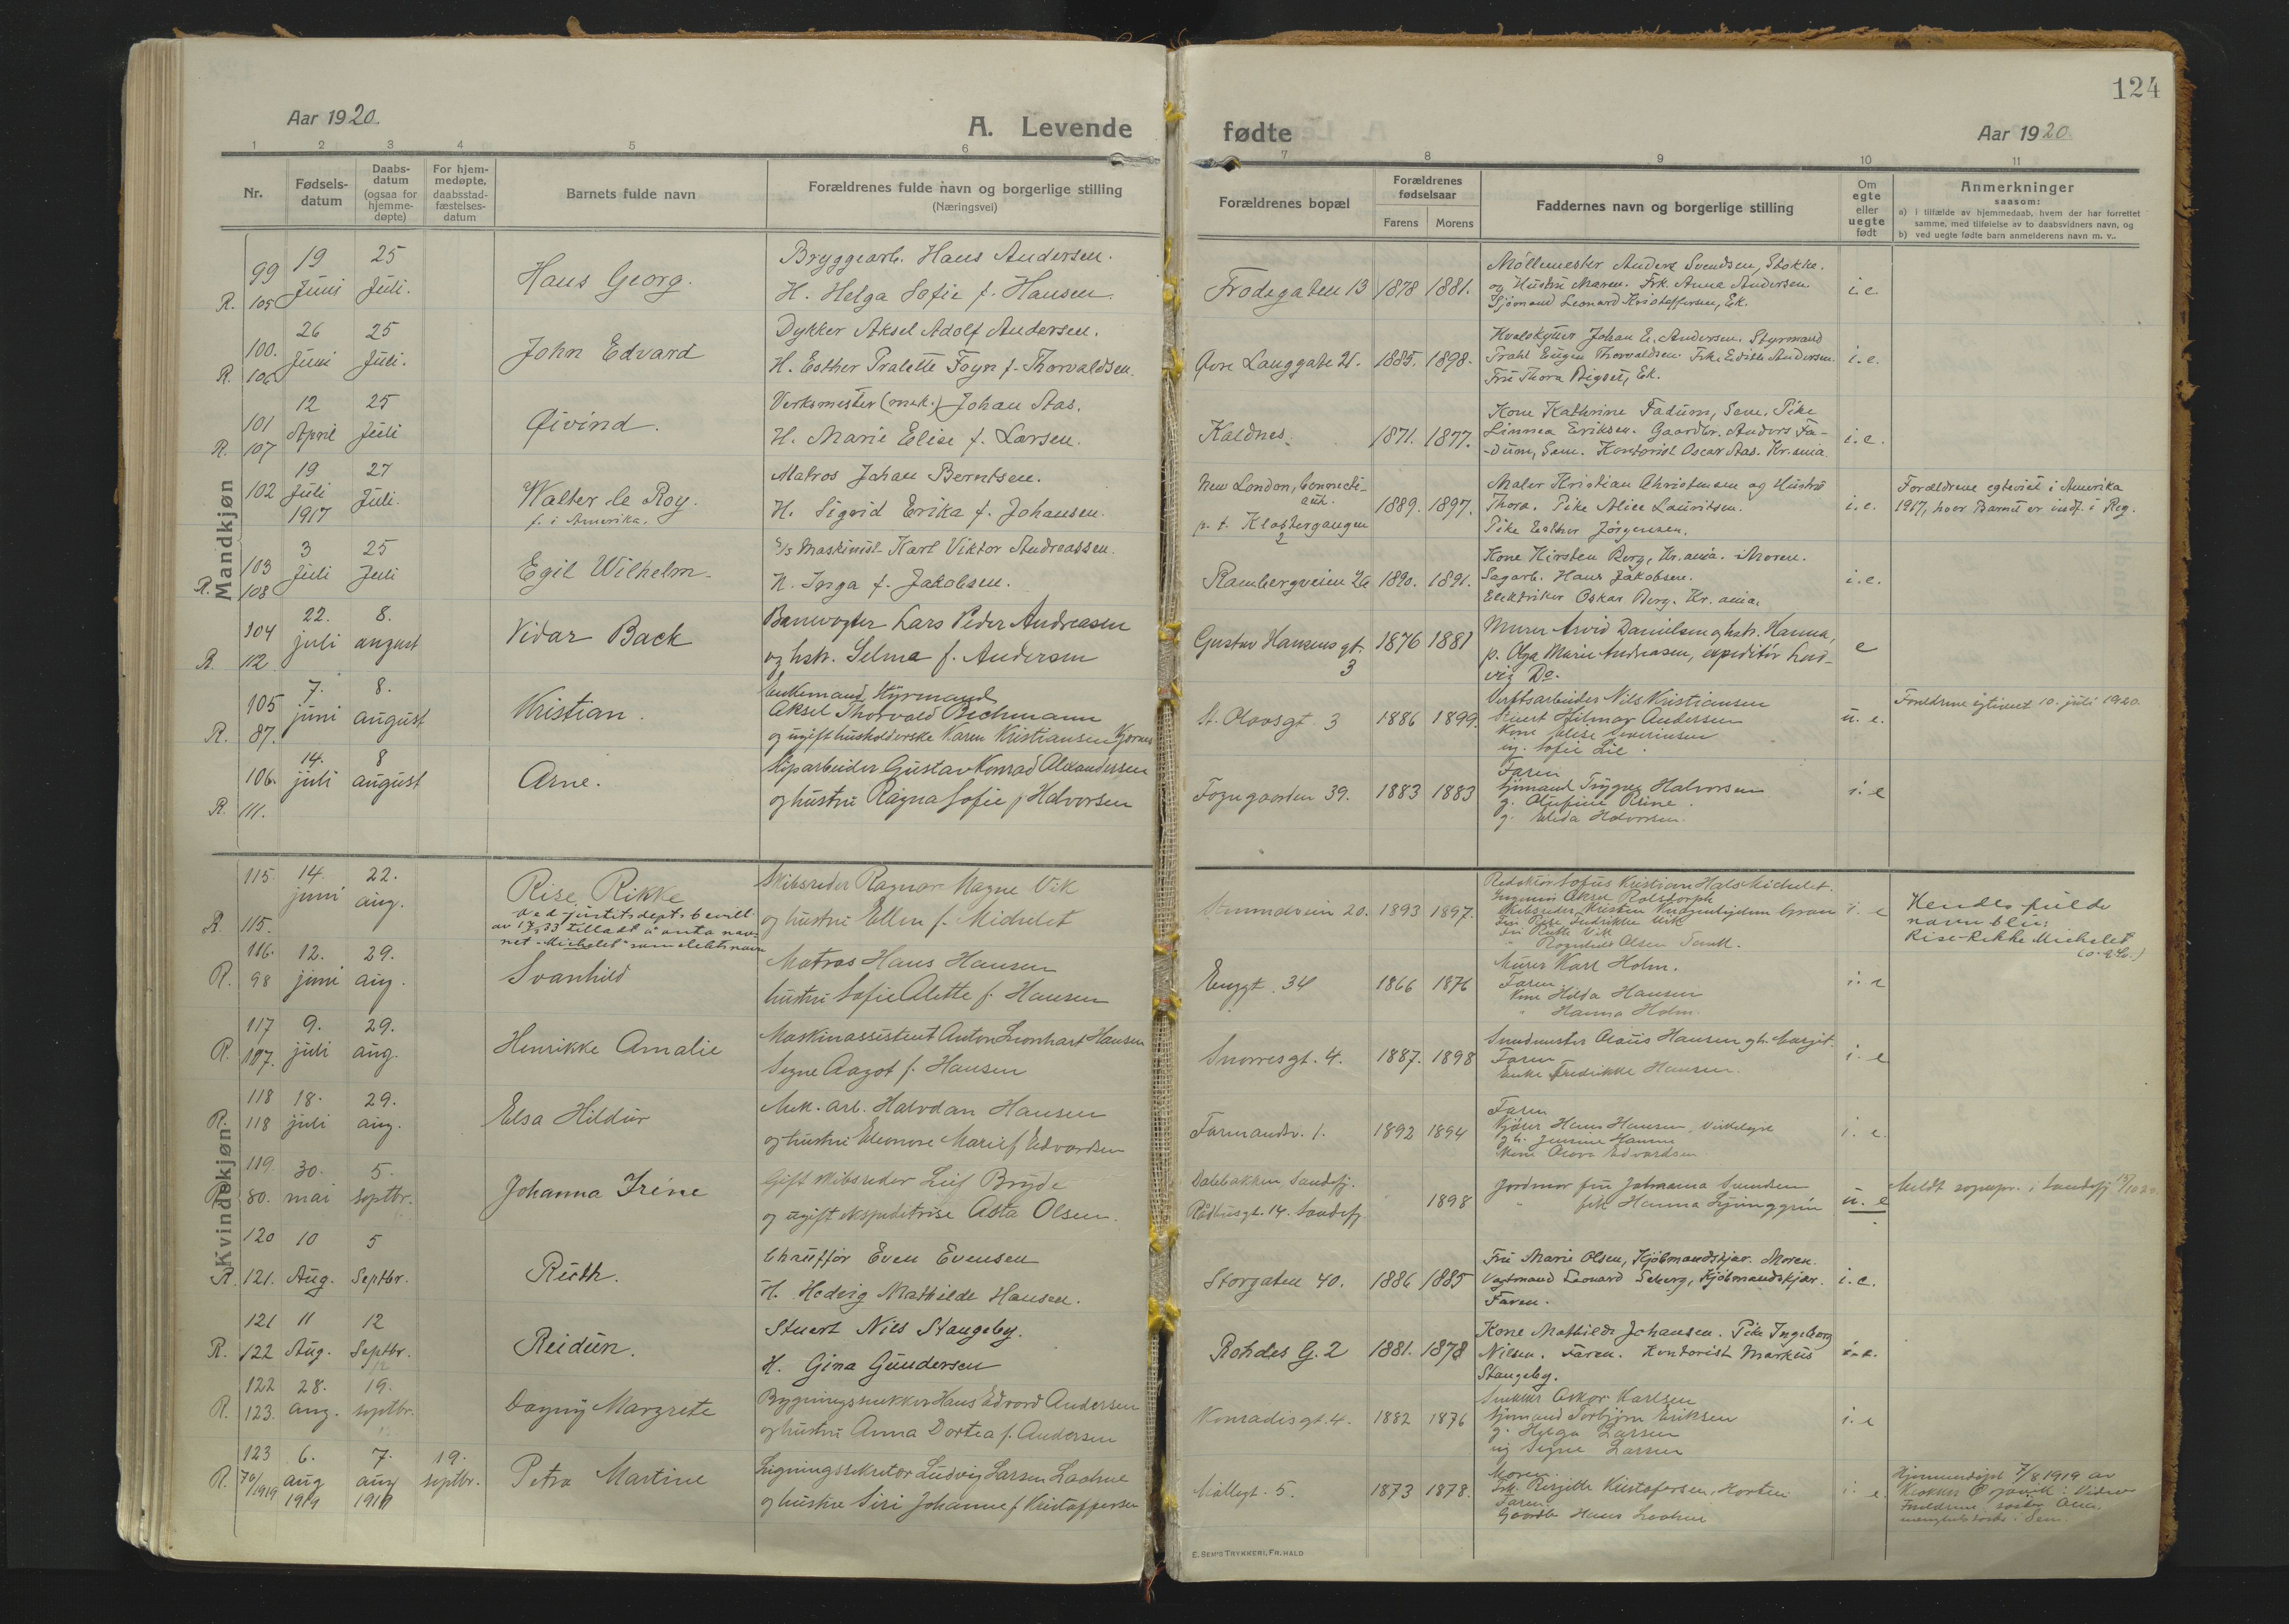 124
Aar 1920.
A. Levende
fødte
Aar 1920
1 2 3 4 5 6
7 8 9 10 11
Nr.
Fødsels-
datum
Daabs-
datum
(ogsaa for
hjemme-
døpte)
For hjem-
medøpte,
daabsstad-
fæstelses-
datum
Barnets fulde navn
Forældrenes fulde navn og borgerlige stilling
(Næringsvei)
Forældrenes bopæl
Forældrenes
fødselsaar
Farens Morens
Faddernes navn og borgerlige stilling
Om
egte
eller
uegte
født
Anmerkninger
saasom:
a) i tilfælde av hjemmedaab, hvem der har forrettet
samme, med tilføielse av to daabsvidners navn, og
b) ved uegte fødte barn anmelderens navn m. v..
Mandkjøn
99 19 25
R. 105 Juni Juli.
Hans Georg.
Bryggearb. Hans Andersen.
H. Helga Sofie f. Hansen.
Frodegaten 13 1878 1881.
Möllemester Anders Svendsen, Stokke.
og Hustru Maren. Frk. Anna Andersen
Sjömand Leonard Kristoffersen, Ek.
i.e.
100. 26 25
R. 106 Juni Juli.
John Edvard
Dykker Aksel Adolf Andersen.
H. Esther Pralette Foyn f. Thorvaldsen.
Øvre Langgate 21. 1885. 1898.
Hvalskytter Johan E. Andersen. Styrmand
Trahl Eugen Thorvaldsen. Frk. Edith Andersen.
Fru Thora Bigset, Ek.
i.e.
101 12 25
R. 107 April Juli
Øivind.
Verksmester (mek.) Johan Aas.
H. Marie Elise f. Larsen.
Kaldnes. 1871. 1877.
Kone Kathrine Fadum, Sem. Pike
Linnea Eriksen. Gaardbr. Anders Fa-
-dum, Sem. Kontorist Oscar Aas. Kr.ania.
i.e.
102 19 27
Juli Juli.
1917
Walter le Roy.
f. i Amerika.
Matros Johan Berntsen.
H. Sigrid Erika f. Johansen.
New London, Connecti-
cut.
p.t. Klostergangen
2
1889. 1897.
Maler Kristian Christensen og Hustru
Thora. Pike Alice Lauritsen.
Pike Esther Jörgensen.
i.e.
Forældrene egteviet i Amerika
1917, hvor Barnet er indf. i Reg.
103 3 25
R. 108 Juli Juli
Egil Wilhelm.
S/S Maskinist Karl Viktor Andreassen.
H. Inga f. Jakobsen.
Rambergveien 26 1890. 1891.
Kone Kirsten Berg, Kr.ania. Moren.
Sagarb. Hans Jakobsen.
Elektriker Oskar Berg. Kr.ania.
i.e.
104 22. 8.
R. 112 juli august
Vidar Back
Banevogter Lars Peder Andreasen
og hstr. Selma f. Andersen
Gustav Hansens gt.
3
1876 1881
Murer Arvid Danielsen og hstr. Hanna,
p. Olga Marie Andreasen, expeditör Lud-
vig Do.
e
105 7. 8.
R. 87. juni august
Kristian.
Enkemand, Styrmand
Aksel Thorvald Bichmann
og ugift husholderske Karen Kristiansen Kjornes
St. Olavsgt. 3 1886 1899.
Verftsarbeider Nils Kristiansen
Stuert Hilmar Andersen
Kone Elise Severinsen
ug. Sofie Lie.
u. e.
Forældrene egteviet 10. juli 1920.
106. 14. 8
R. 111. juli august
Arne.
Skiparbeider Gustav Konrad Alexandersen
og hustru Ragna Sofie f. Halvorsen
Foyngaarden 39. 1883 1883
Faren
Sjömand Trygve Halvorsen
g. Olufine Reine.
g. Elida Halvorsen.
i. e
Kvindekjøn
115. 14. 22.
R. 115. juni aug.
Rise Rikke
Ved justitsdept.s bevill.
av 17/8 33 tilladt å anta nav-
net "Michelet" som slektsnavn
Skibsreder Ragnar Magne Vik
og hustru Ellen f. Michelet
Strandveien 20. 1893 1897.
Redaktör Sofus Kristian Hals Michelet.
Ingeniör Aksel Rolsdorph
Skibsreder Kristen Gran
Fru Rise Fredrikke Vik
Fru Rikke Vik
" Ragnhild Olsen
i. e
Hendes fulde
navn blir:
Rise-Rikke Michelet
116. 12. 29.
R. 98 juni aug.
Svanhild
Matros Hans Hansen
hustru Sofie Alette f. Hansen
Enggt. 34 1866 1876
Murer Karl Holm.
Faren
Kone Hilda Hansen
" Hanna Holm.
i. e
117 9. 29.
R. 117. juli aug.
Henrikke Amalie
Maskinassistent Anton Leonhart Hansen
Signe Aagot f. Hansen
Snorresgt. 4. 1887. 1898
Smedmester Olaus Hansen gh. Margit.
Faren
Enke Fredrikke Hansen.
i. e
118 18. 29.
R. 118 juli aug.
Elsa Hildur
Mek. arb. Halvdan Hansen
og hustru Eleonore Marie f Edvardsen
Farmandsv. 1. 1892 1894
Faren
Kjører Hans Hansen,
gh. Hansen
Kone Edvardsen
i. e.
119 30. 5.
R. 80. mai septbr.
Johanna Irene
Gift skibsreder Leif Bryde
og ugift ekspeditrise Asta Olsen.
Dalebakken Sandefj.
Rådhusgt. 14. Sandefj.
1898
Jordmor fru Johanna
" frk. Hanna Ljunggrén
u. e
Meldt sognepr. i Sandefj
120 10 5
R. 121. Aug. Septbr.
Ruth.
Chaufför Even Evensen
H. Hedvig Mathilde Hansen.
Storgaten 40. 1886 1885
Fru Marie Olsen, Kjöbmandskjær. Moren.
Vagtmand Leonard Seberg, Kjöbmandskjær.
Faren.
i.e.
121 11 12
R. 122 Aug. Septbr.
Reidun.
Stuert Nils Stangeby.
H. Gina Gundersen
Rohdes G. 2 1881. 1878
Kone Mathilde Johansen. Pike Ingeborg
Nilsen. Faren. Kontorist Markus
Stangeby.
i.e.
122 28. 19.
R. 123. aug. septbr.
Dagny Margrete
Bygningssnekker Hans Edvard Andersen
og hustru Anna Dortea f. Andersen
Konradisgt. 4. 1882 1876
Snekker Oskar Karlsen
Sjömand Torbjörn Eriksen
g. Helga Larsen
ug Signe Larsen
i. e
123 6. 7. 19.
R. 70/1919 aug aug septbr.
1919 1919
Petra Martine
Ligningssekretær Ludvig Larsen Laahne
og hustru Siri Johanne f. Kristoffersen
Möllegt. 5. 1873 1878.
Moren.
Frk. Birgitte Kristofersen, Horten
Faren
Gaardbr Hans Laahne
i. e.
Hjemmedöpt 7/8 1919 av
E. SEM'S TRYKKERI, FR.HALD